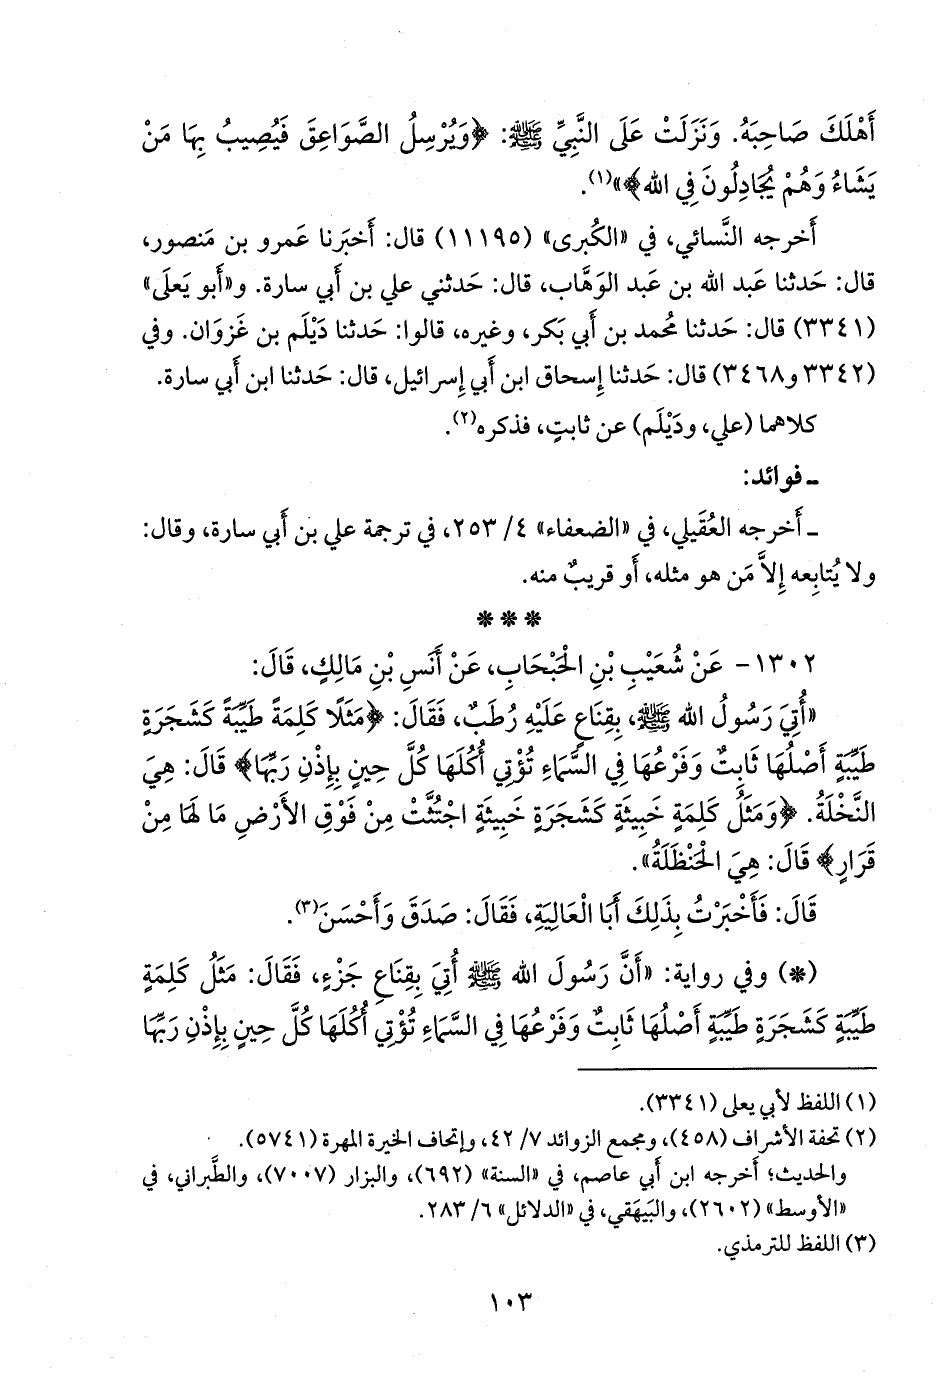 أَهْلَكَ صَاحِبَهُ. وَنَزَلَتْ عَلَى النَّبِيِّ ﷺ: ﴿وَيُرْسِلُ الصَّوَاعِقَ فَيُصِيبُ بِهَا مَنْ
يَشَاءُ وَهُمْ يُجَادِلُونَ فِي الله﴾»(١).
أَخرجه النَّسائي، في «الكُبرى» (١١١٩٥) قال: أَخبَرنا عَمرو بن مَنصور،
قال: حَدثنا عَبد الله بن عَبد الوَهَّاب، قال: حَدثني علي بن أَبي سارة. و«أَبو يَعلَى»
(٣٣٤١) قال: حَدثنا مُحمد بن أَبي بَكر، وغيره، قالوا: حَدثنا دَيْلَم بن غَزوان. وفي
(٣٣٤٢ و٣٤٦٨) قال: حَدثنا إِسحاق ابن أَبي إِسرائيل، قال: حَدثنا ابن أَبي سارة.
كلاهما (علي، ودَيْلَم) عن ثابتٍ، فذكره(٢).
ـ فوائد:
ـ أَخرجه العُقَيلي، في «الضعفاء» ٤/ ٢٥٣، في ترجمة علي بن أَبي سارة، وقال:
ولا يُتابِعه إِلاَّ مَن هو مثله، أَو قريبٌ منه.
***
١٣٠٢- عَنْ شُعَيْبِ بْنِ الْحَبْحَابِ، عَنْ أَنَسِ بْنِ مَالِكٍ، قَالَ:
«أُتِيَ رَسُولُ الله ﷺ، بِقِنَاعٍ عَلَيْهِ رُطَبٌ، فَقَالَ: ﴿مَثَلًا كَلِمَةً طَيِّبَةً كَشَجَرَةٍ
طَيِّبَةٍ أَصْلُهَا ثَابِتٌ وَفَرْعُهَا فِي السَّمَاءِ تُؤْتِي أُكُلَهَا كُلَّ حِينٍ بِإِذْنِ رَبِّهَا﴾ قَالَ: هِيَ
النَّخْلَةُ. ﴿وَمَثَلُ كَلِمَةٍ خَبِيثَةٍ كَشَجَرَةٍ خَبِيثَةٍ اجْتُثَّتْ مِنْ فَوْقِ الأَرْضِ مَا لَهَا مِنْ
قَرَارٍ﴾ قَالَ: هِيَ الْحَنْظَلَةُ».
قَالَ: فَأَخْبَرْتُ بِذَلِكَ أَبَا الْعَالِيَةِ، فَقَالَ: صَدَقَ وَأَحْسَنَ(٣).
(*) وفي رواية: «أَنَّ رَسُولَ الله ﷺ أُتِيَ بِقِنَاعِ جَزْءٍ، فَقَالَ: مَثَلُ كَلِمَةٍ
طَيِّبَةٍ كَشَجَرَةٍ طَيِّبَةٍ أَصْلُهَا ثَابِتٌ وَفَرْعُهَا فِي السَّمَاءِ تُؤْتِي أُكُلَهَا كُلَّ حِينٍ بِإِذْنِ رَبِّهَا
(١) اللفظ لأبي يعلى (٣٣٤١).
(٢) تحفة الأشراف (٤٥٨)، ومجمع الزوائد ٧/ ٤٢، وإتحاف الخيرة المهرة (٥٧٤١).
والحديث؛ أَخرجه ابن أَبي عاصم، في «السنة» (٦٩٢)، والبزار (٧٠٠٧)، والطَّبراني، في
«الأوسط» (٢٦٠٢)، والبَيهَقي، في «الدلائل» ٦/ ٢٨٣.
(٣) اللفظ للترمذي.
١٠٣